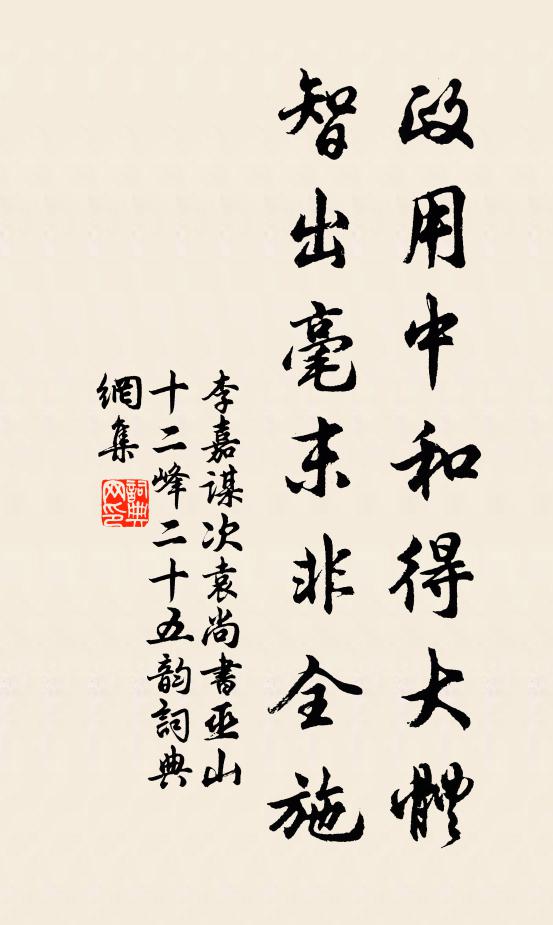 政用中和得大體
智出毫末非全施
李嘉謀次袁尚書巫山
十二峰二十五韵詞典
網集
詞典網印